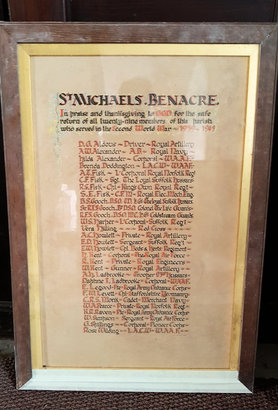 St MICHAELS. BENACRE.
In praise and thanksgiving to GOD for the safe
return of all twenty-nine members of this parish
who served in the Second World War ~ 1939-1945
D.G. Aldous ~ Driver ~ Royal Artillery
A.W. Alexander ~ A.B. Royal Navy
Hilda Alexander ~ Corporal ~ W.A.A.F.
Brenda Doddington ~ L.A.C.W ~ W.A.A.F.
A.E. Fisk ~ L/Corporal Royal Norfolk Regt
C.F. Fisk ~ Sgt. The Loyal Suffolk Hussars
R.G. Fisk ~ Cpl ~ Kings Own Royal Regt
S.L. Fisk ~ C.F.M. ~ Royal Elec. Mech. Eng.
W.S. Harper ~ L/Corporal ~ Suffolk Regt
Vera Hilling ~ Red Cross
A.C. Howlett ~ Private ~ Royal Artillery
E.W. Howlett ~ Sergeant ~ Suffolk Regt
H. Kent ~ Corporal ~ Royal Air Force
R. Kent ~ Private ~ Royal Engineers
W. Kent ~ Gunner ~ Royal Artillery
Daphne I. Ladbrooke ~ Corporal ~ W.A.A.F.
F.W. Levett ~ Cpl ~ Staffordshire Yeomanry
G.R.S. Monk ~ Cadet ~ Merchant Navy
W.A. Pearce ~ Private ~ Royal Norfolk Regt
W. Simpson ~ Sergeant ~ Royal Air Force
G. Stannard ~ Corporal ~ Pioneer Corps
Rose Wilding ~ L.A.C.W ~ W.A.A.F.